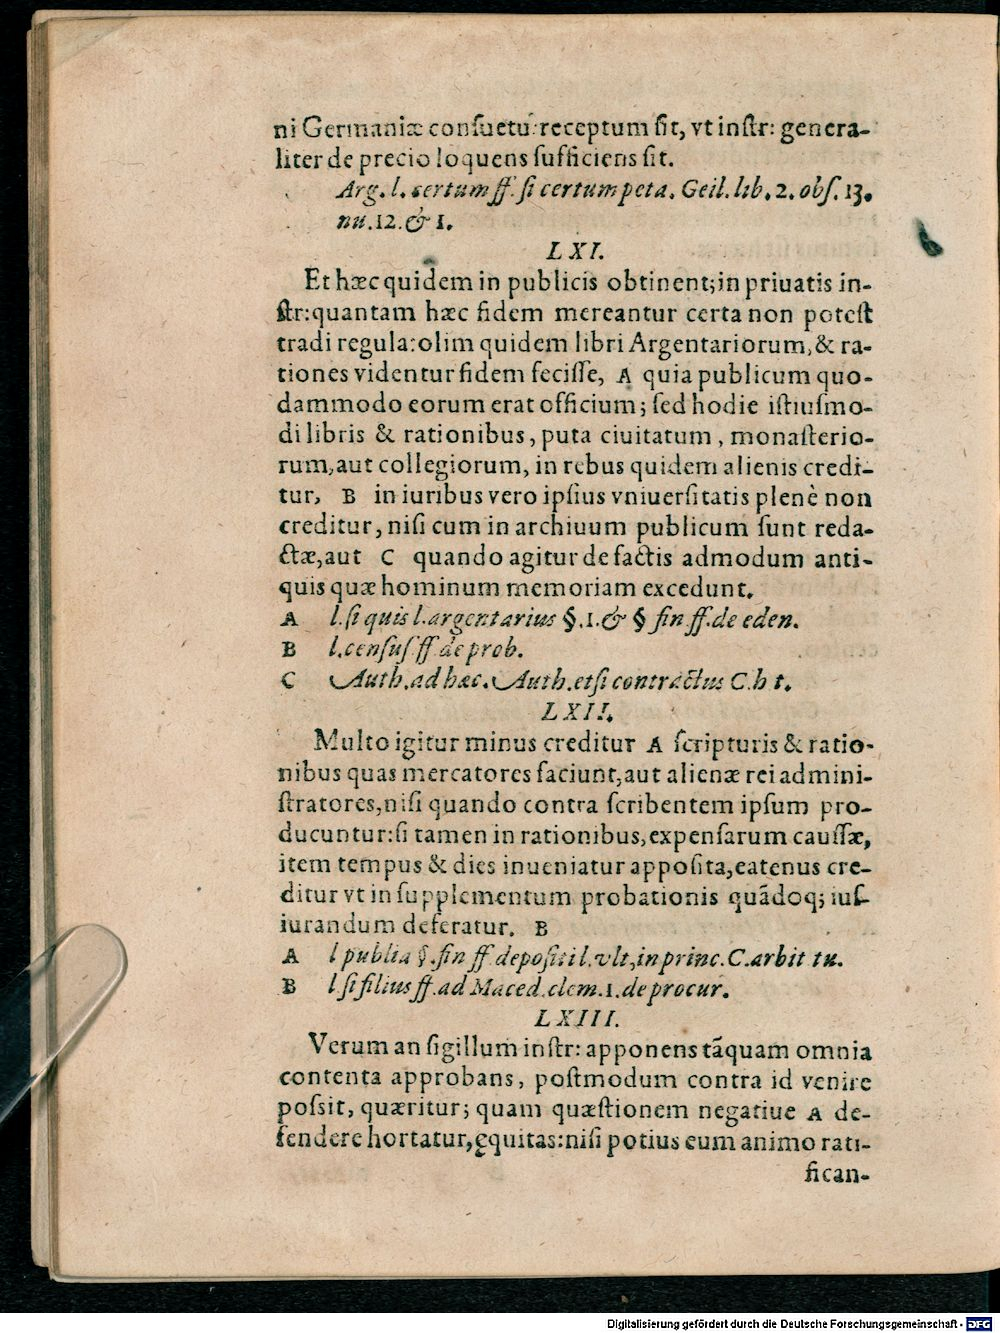 ni Germaniæ consuetu: receptum sit, vt instr: genera-
liter de precio loquens sufficiens sit.
Arg. l. certum ff. si certum peta. Geil. lib. 2. obs. 13.
nu. 12. & 1.
LXI.
Et hæc quidem in publicis obtinent; in priuatis in-
str: quantam hæc fidem mereantur certa non potest
tradi regula: olim quidem libri Argentariorum, & ra-
tiones videntur fidem fecisse, A quia publicum quo-
dammodo eorum erat officium; sed hodie istiusmo-
di libris & rationibus, puta ciuitatum, monasterio-
rum, aut collegiorum, in rebus quidem alienis credi-
tur, B in iuribus vero ipsius vniuersitatis plenè non
creditur, nisi cum in archiuum publicum sunt reda-
ctæ, aut C quando agitur de factis admodum anti-
quis quæ hominum memoriam excedunt.
A l. si quis l. argentarius §. 1. & § fin ff. de eden.
B l. census ff. de prob.
C Auth. ad hæc. Auth. et si contractus C. h t.
LXII.
Multo igitur minus creditur A scripturis & ratio-
nibus quas mercatores faciunt, aut alienæ rei admini-
stratores, nisi quando contra scribentem ipsum pro-
ducuntur: si tamen in rationibus, expensarum caussæ,
item tempus & dies inueniatur apposita, eatenus cre-
ditur vt in supplementum probationis quãdoq; ius-
iurandum deferatur. B
A l publia §. fin ff. depositi l. vlt, in princ. C. arbit tu.
B l si filius ff. ad Maced. clem. 1. de procur.
LXIII.
Verum an sigillum instr: apponens tãquam omnia
contenta approbans, postmodum contra id venire
possit, quæritur; quam quæstionem negatiue A de-
fendere hortatur, ęquitas: nisi potius eum animo rati-
fican-
Digitalisierung gefördert durch die Deutsche Forschungsgemeinschaft - DFG